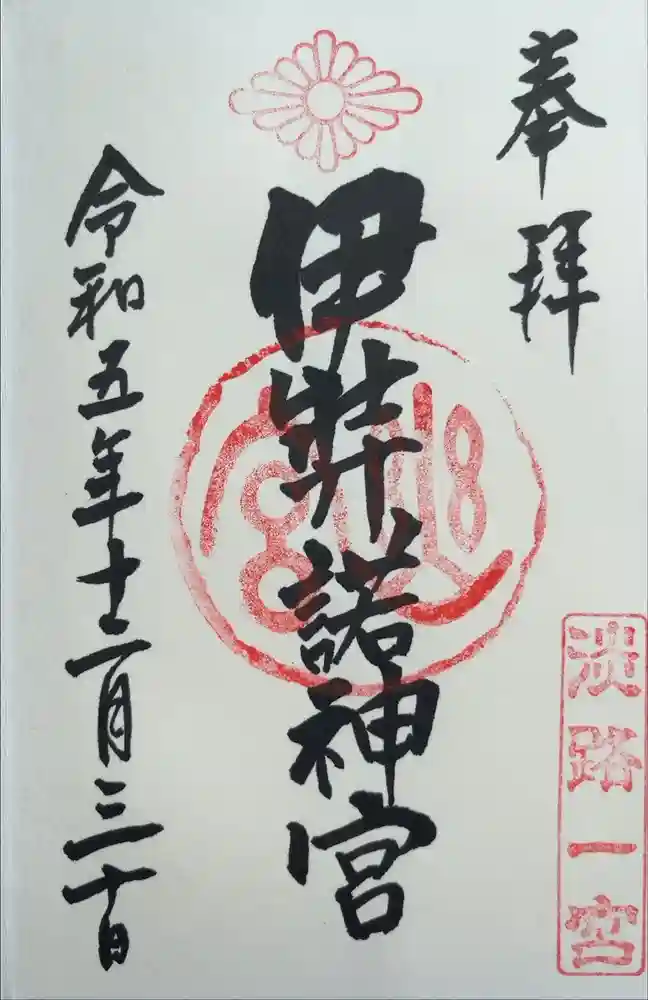 奉拝
伊弉諾神宮
令和五年十二月三十日
淡路一宮